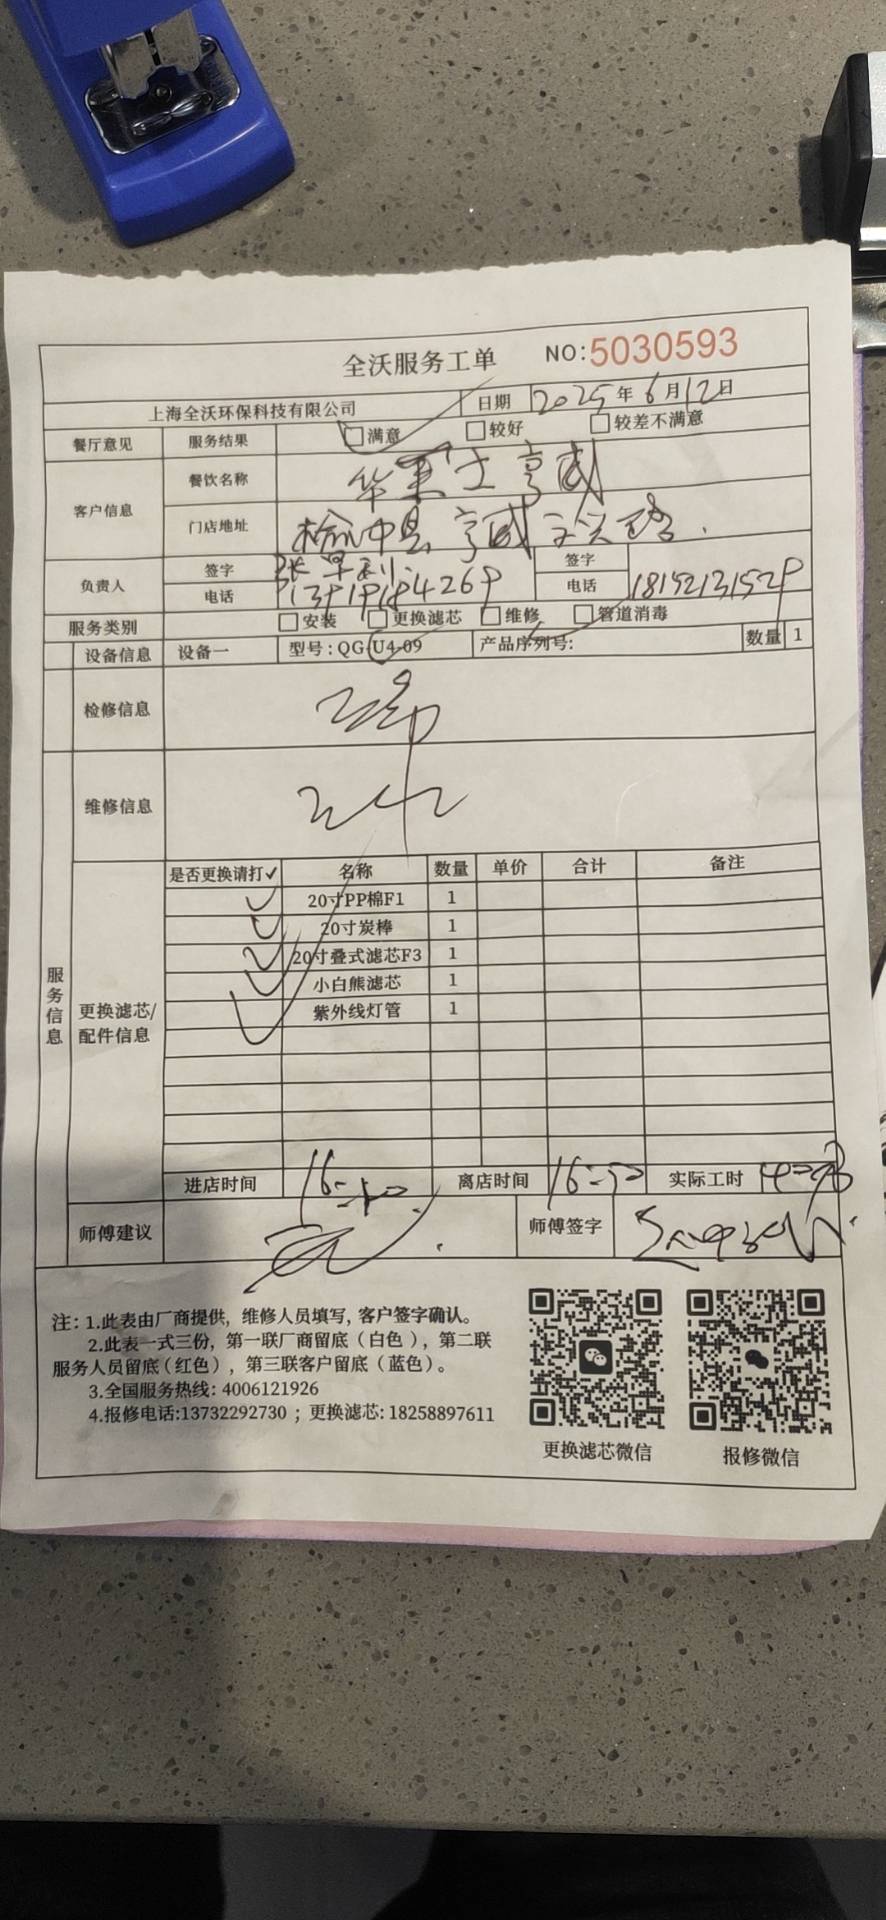 全沃服务工单 NO:5030593
上海全沃环保科技有限公司 日期 2025年6月12日
餐厅意见 服务结果 满意 较好 较差不满意
客户信息 餐饮名称 华莱士亨威
门店地址 榆中县亨威
负责人 签字 签字
电话 电话 18152131529
服务类别 安装 更换滤芯 维修 管道消毒
设备信息 设备一 型号:QG-U4-09 产品序列号: 数量 1
检修信息
维修信息
服务信息
更换滤芯/配件信息
是否更换请打✓ 名称 数量 单价 合计 备注
✓ 20寸PP棉F1 1
✓ 20寸炭棒 1
✓ 20寸叠式滤芯F3 1
✓ 小白熊滤芯 1
✓ 紫外线灯管 1
进店时间 离店时间 16:50 实际工时
师傅建议 师傅签字
注: 1.此表由厂商提供, 维修人员填写, 客户签字确认。
2.此表一式三份, 第一联厂商留底（白色）, 第二联
服务人员留底（红色）, 第三联客户留底（蓝色）。
3.全国服务热线: 4006121926
4.报修电话:13732292730 ; 更换滤芯: 18258897611
更换滤芯微信 报修微信